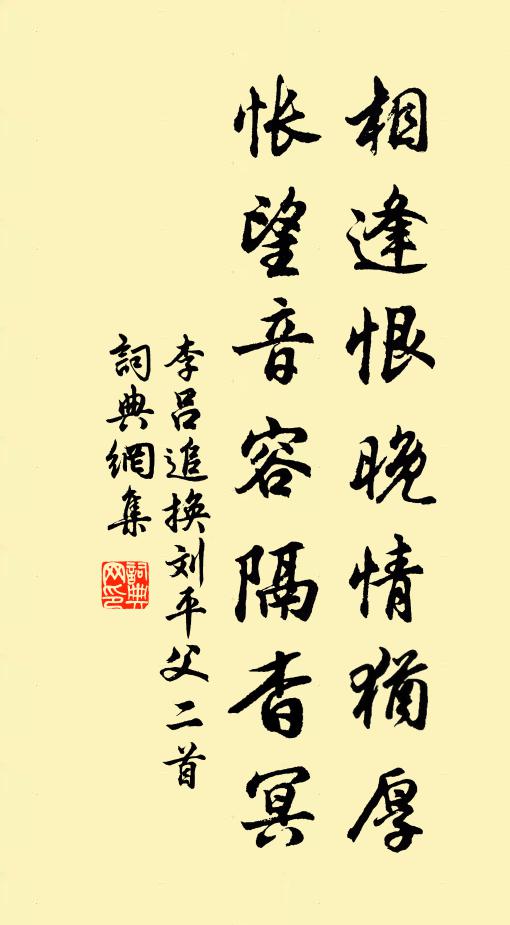 相逢恨晚情犹厚
怅望音容隔杳冥
李吕追换刘平父二首
詞典網集
詞典
网印